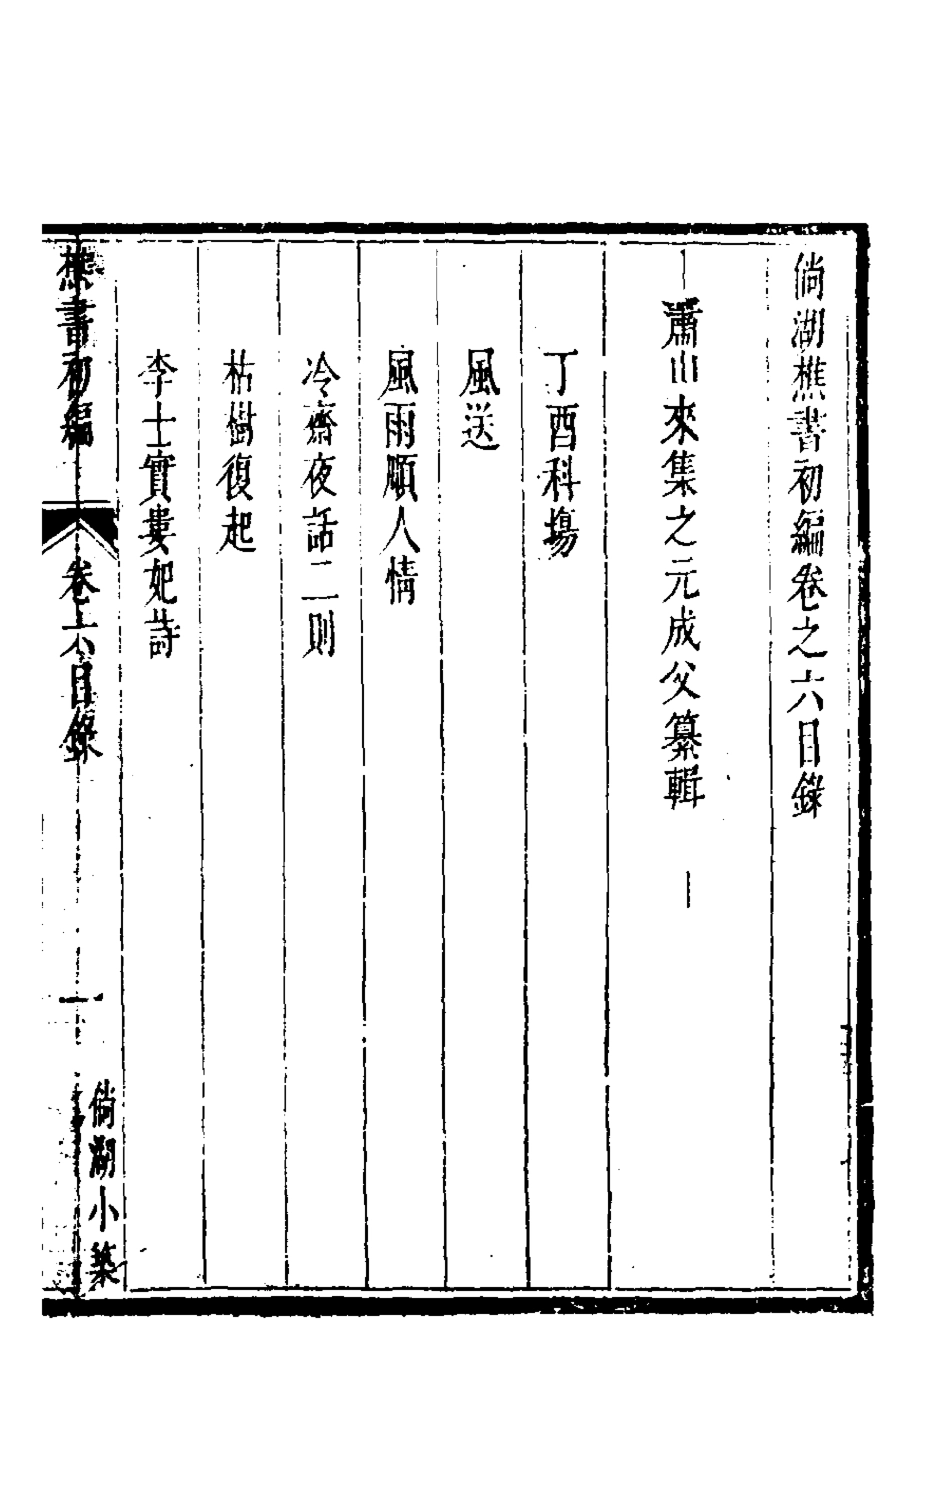 倘湖樵書初編卷之六目錄
蕭山來集之元成父纂輯
丁酉科塲
風送
風雨順人情
冷齋夜話二則
枯樹復起
李士實婁妃詩
樵書初編
卷六目錄
一
倘湖小築